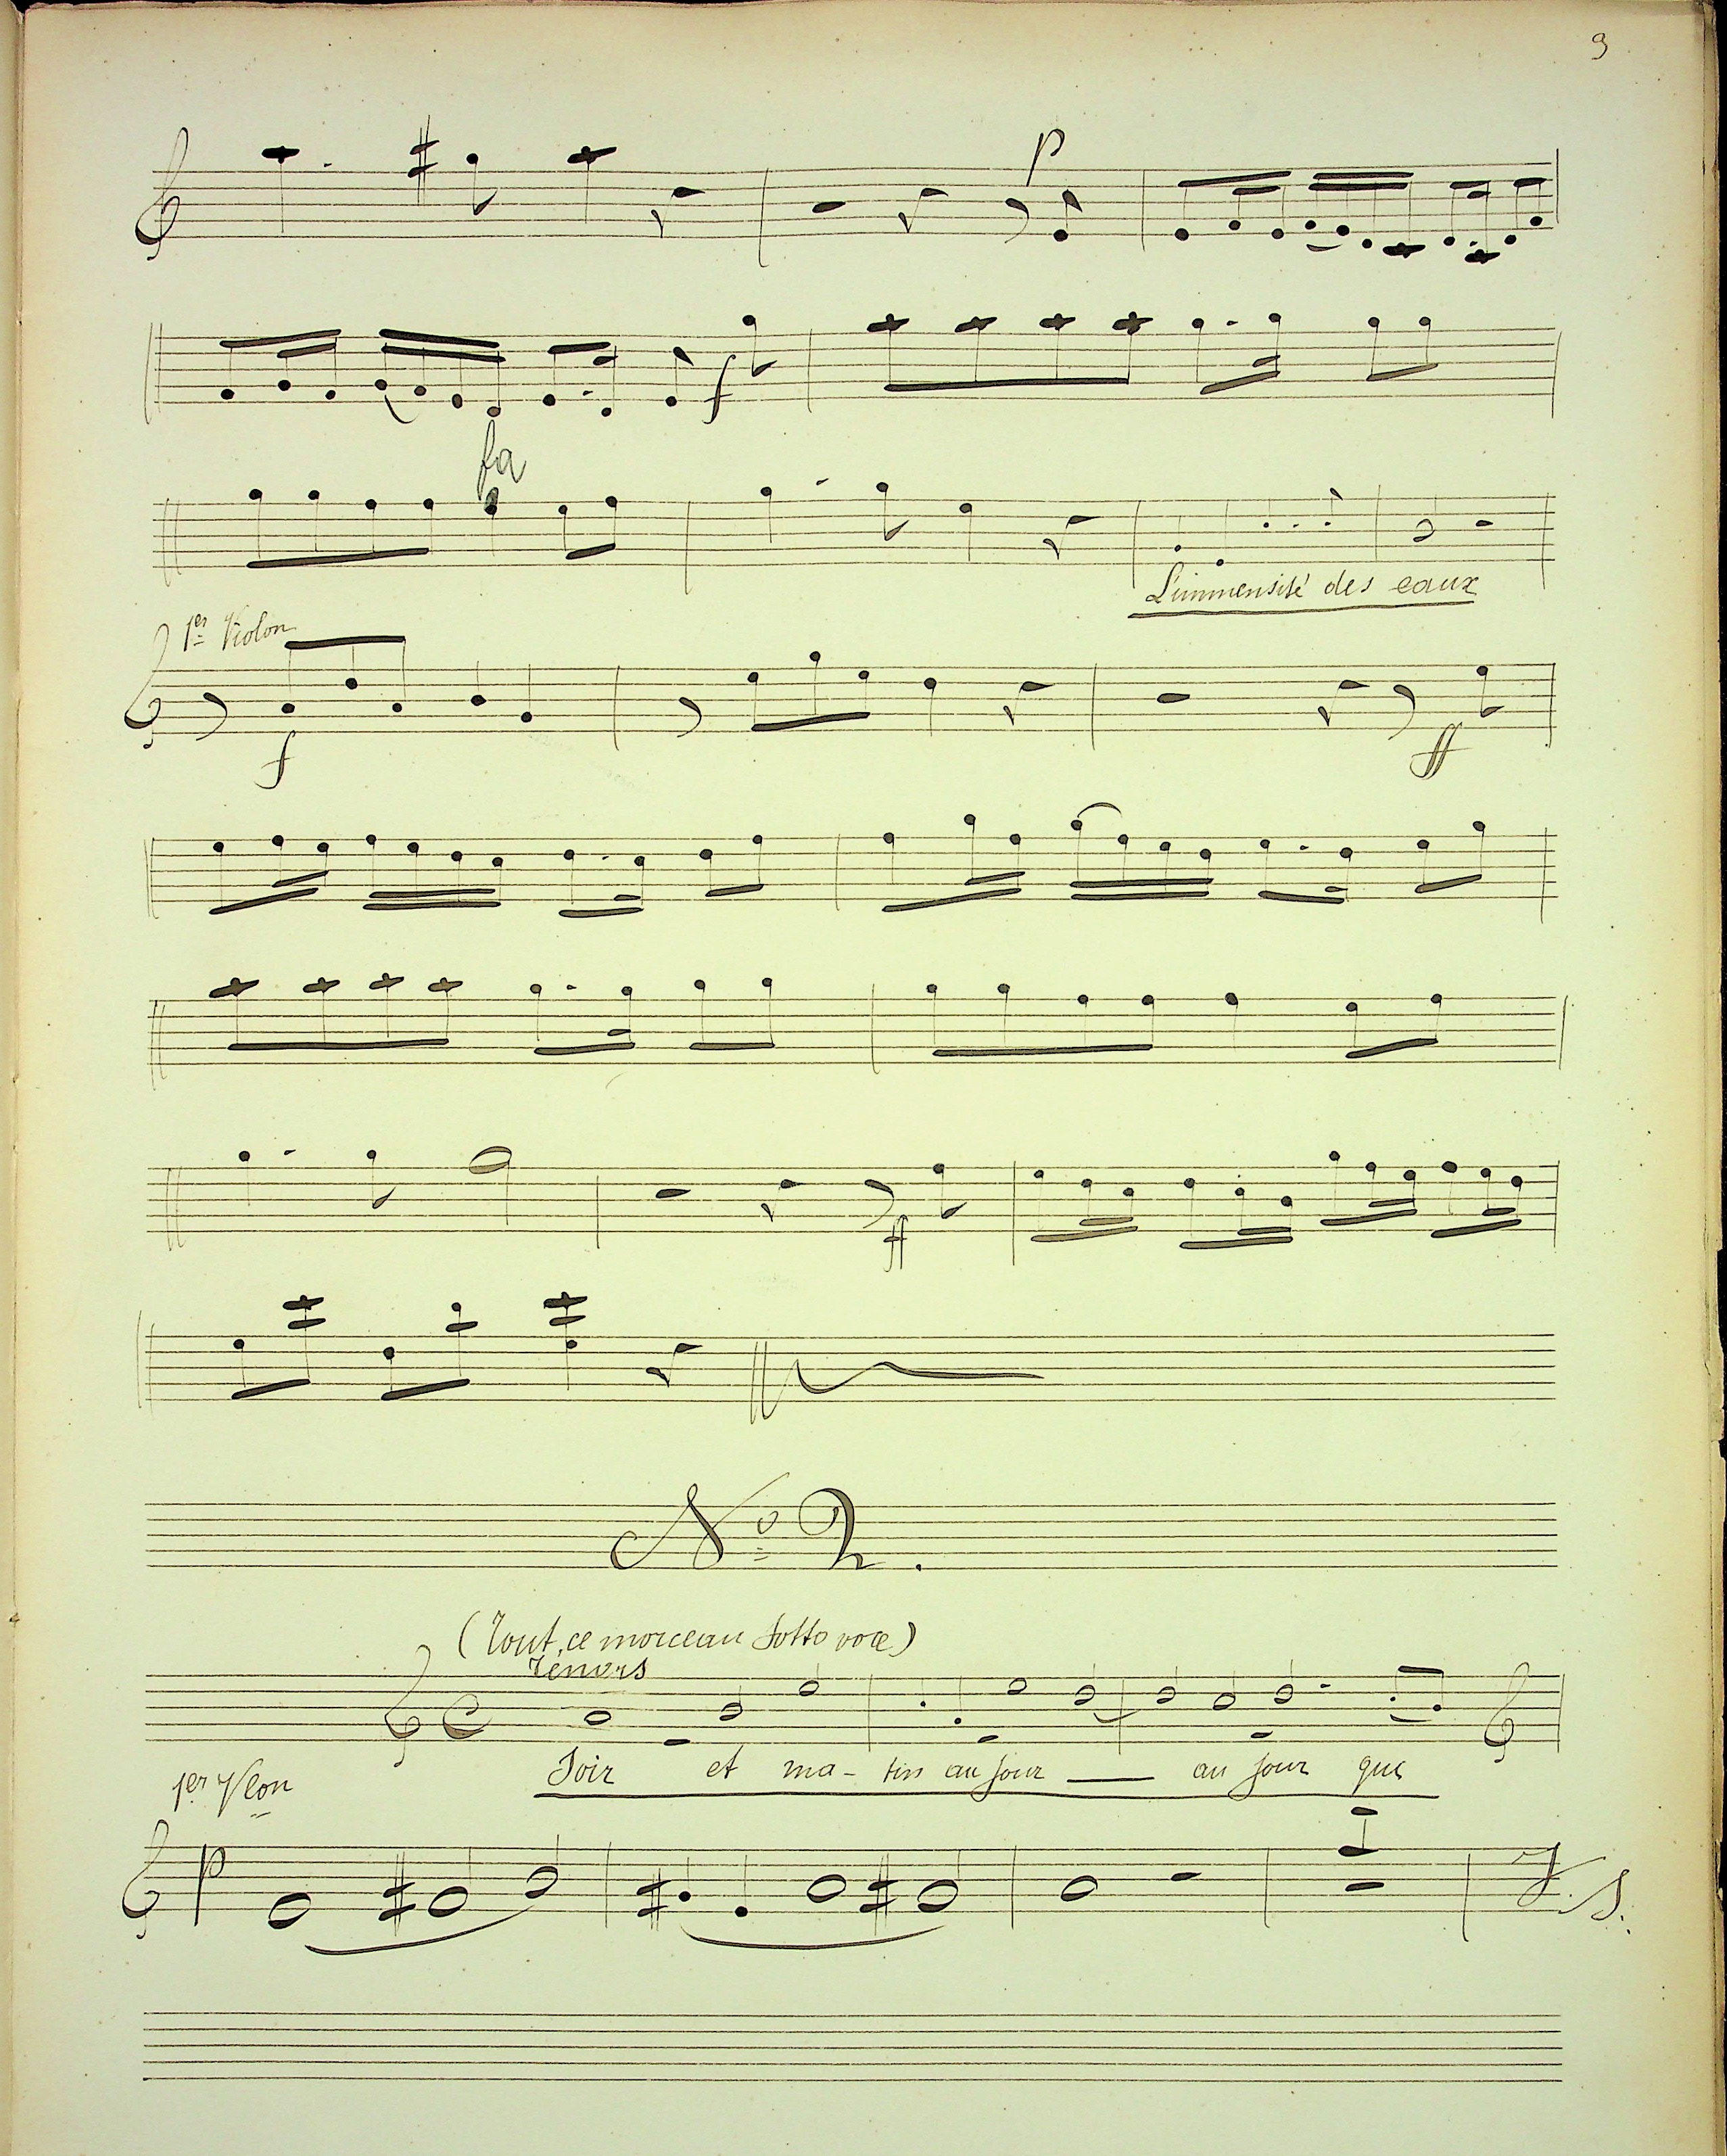 3
p
f
fa
L'immensité des eaux
1er Violon
f
ff
ff
No 2.
(Tout ce morceau sotto voce)
Ténors
Soir et ma- tin au jour au jour que
1er Vlon
p
V. S.